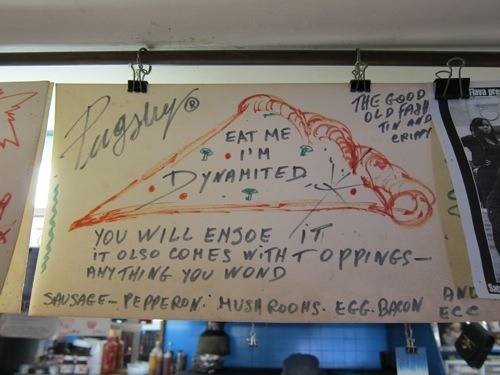 Pugsley ®
THE GOOD
OLD FASH
TIN AND
CRIPPY
EAT ME
I'M
DYNAMITED
YOU WILL ENJOE IT
IT OLSO COMES WITH TOPPINGS-
ANYTHING YOU WOND
SAUSAGE- PEPPERON. MUSHROOMS. EGG. BACON AND
ECC
Flava pre